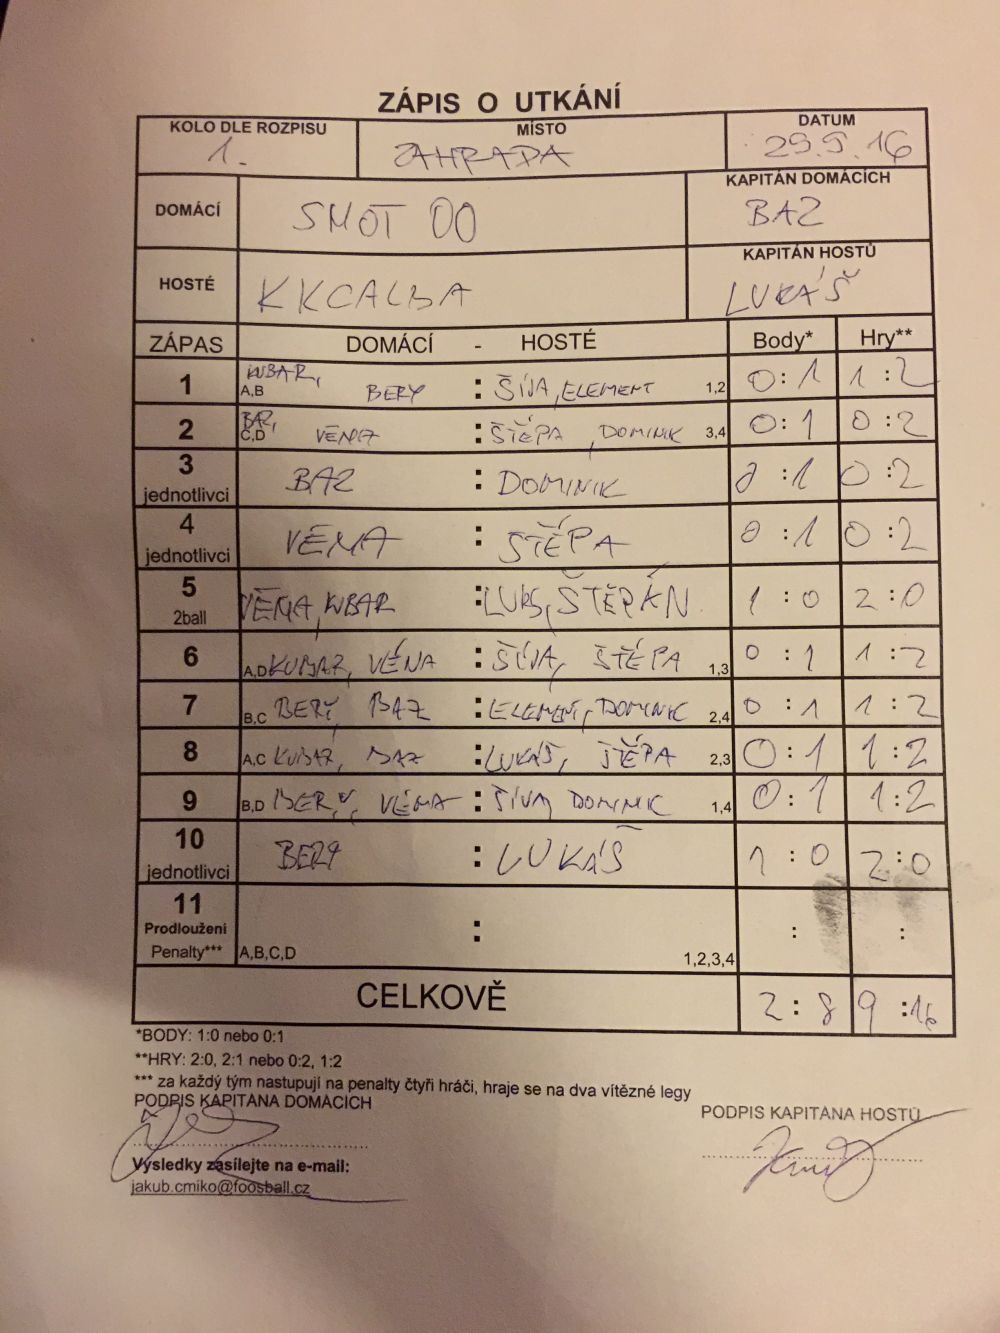 ZÁPIS O UTKÁNÍ
KOLO DLE ROZPISU MÍSTO DATUM
1. ZAHRADA 29.9.16
KAPITÁN DOMÁCÍCH
DOMÁCÍ SMOT OO BAZ
KAPITÁN HOSTŮ
HOSTÉ KKCALBA LUKÁŠ
ZÁPAS DOMÁCÍ - HOSTÉ Body* Hry**
1 A,B KUBAR, BERY : ŠÍJA, ELEMENT 1,2 0:1 1:2
2 C,D BAZ, VÉNA : ŠTĚPA, DOMINIK 3,4 0:1 0:2
3 jednotlivci BAZ : DOMINIK 0:1 0:2
4 jednotlivci VÉNA : ŠTĚPA 0:1 0:2
5 2ball VÉNA, KUBAR : LUKS, ŠTĚPÁN 1:0 2:0
6 A,D KUBAR, VÉNA : ŠÍJA, ŠTĚPA 1,3 0:1 1:2
7 B,C BERY, BAZ : ELEMENT, DOMINIK 2,4 0:1 1:2
8 A,C KUBAR, BAZ : LUKÁŠ, ŠTĚPA 2,3 0:1 1:2
9 B,D BERY, VÉNA : ŠÍJA, DOMINIK 1,4 0:1 1:2
10 jednotlivci BERY : LUKÁŠ 1:0 2:0
11
Prodloužení : : :
Penalty*** A,B,C,D 1,2,3,4
CELKOVĚ 2:8 9:16
*BODY: 1:0 nebo 0:1
**HRY: 2:0, 2:1 nebo 0:2, 1:2
*** za každý tým nastupují na penalty čtyři hráči, hraje se na dva vítězné legy
PODPIS KAPITÁNA DOMÁCÍCH
PODPIS KAPITÁNA HOSTŮ
Výsledky zasílejte na e-mail:
jakub.cmiko@foosball.cz